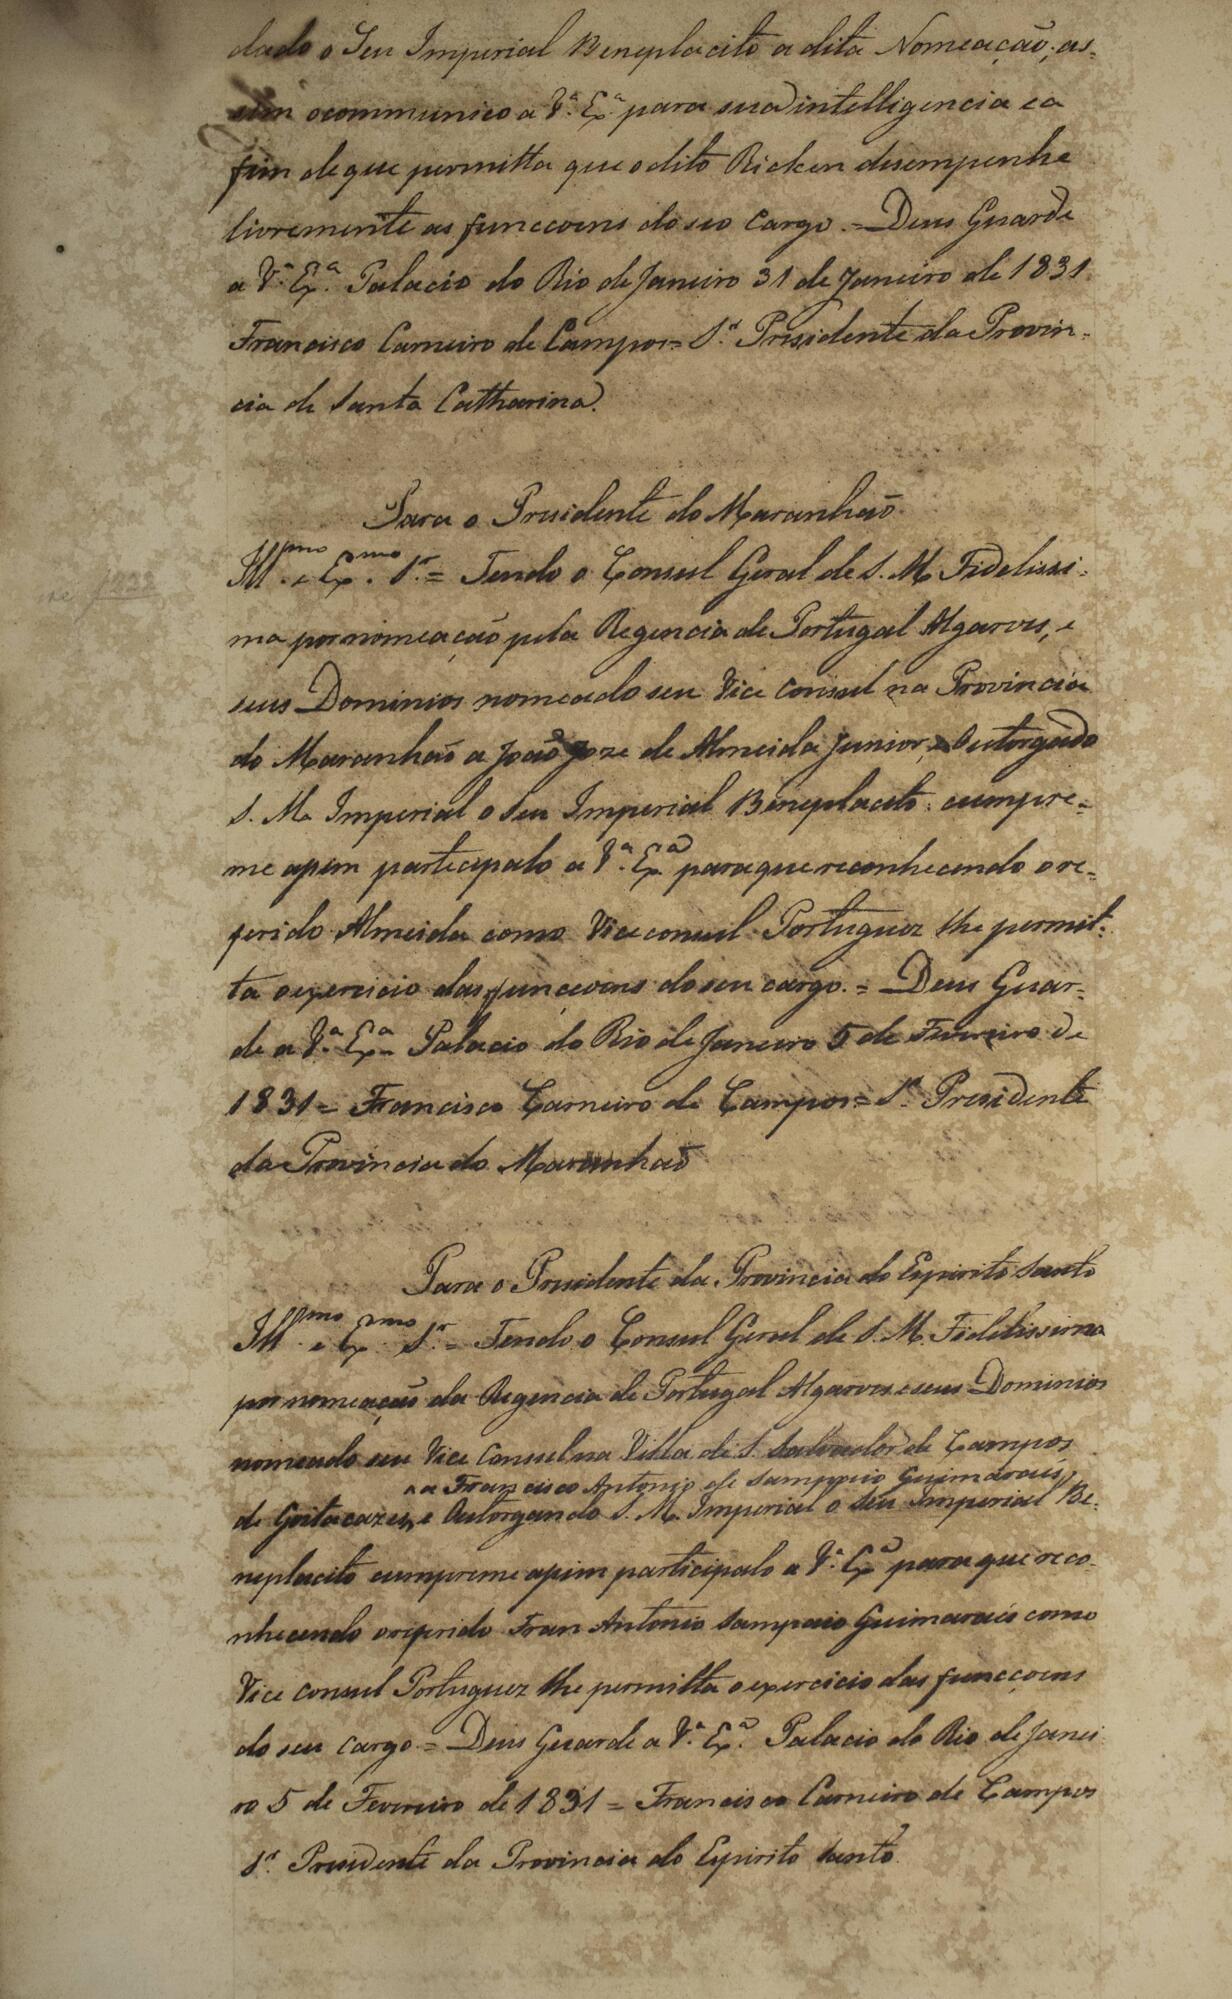 dado o Seu Imperial Beneplacito a dita Nomeação, as-
sim o communico a V.ª Ex.ª para sua intelligencia e a
fim de que permitta que o dito Ricken desempenhe
livremente as funccoens do seo Cargo. = Deus Guarde
a V.ª Ex.ª Palacio do Rio de Janeiro 31 de Janeiro de 1831
Francisco Carneiro de Campos = S.r Presidente da Provin-
cia de Santa Catharina.
Para o Presidente do Maranhão
Ill.mo e Ex.mo S.r = Tendo o Consul Geral de S. M. Fidelissi-
ma por nomeação pela Regencia de Portugal Algarves, e
seus Dominios nomeado seu Vice Consul na Provincia
do Maranhão a João Joze de Almeida Junior, e Outorgado
S. M. Imperial o Seu Imperial Beneplacito: cumpre-
me assim participalo a V.ª Ex.ª para que reconhecendo o re-
ferido Almeida como Vice consul Portuguez lhe permit-
ta o exercicio das funçoens do seu cargo. = Deus Guar-
de a V.ª Ex.ª Palacio do Rio de Janeiro 5 de Fevreiro de
1831 = Francisco Carneiro de Campos = S.r Presidente
da Provincia do Maranhão
Para o Presidente da Provincia do Espirito Santo
Ill.mo e Ex.mo S.r = Tendo o Consul Geral de S. M. Fidelissima
por nomeação da Regencia de Portugal Algarves e seus Dominios
nomeado seu Vice Consul na Villa de S. Salvador de Campos
a Francisco Antonio de Sampaio Guimarães,
de Goitacazes, e Outorgando S. M. Imperial o Seu Imperial Be-
neplacito cumpreme assim participalo a V.ª Ex.ª para que reco-
nhecendo o referido Fran Antonio Sampaio Guimarães como
Vice Consul Portuguez lhe permitta o exercicio das funcçoens
do seu cargo = Deus Guarde a V.ª Ex.ª Palacio do Rio de Janei
ro 5 de Fevreiro de 1831 = Francisco Carneiro de Campos
S.r Presidente da Provincia do Espirito Santo